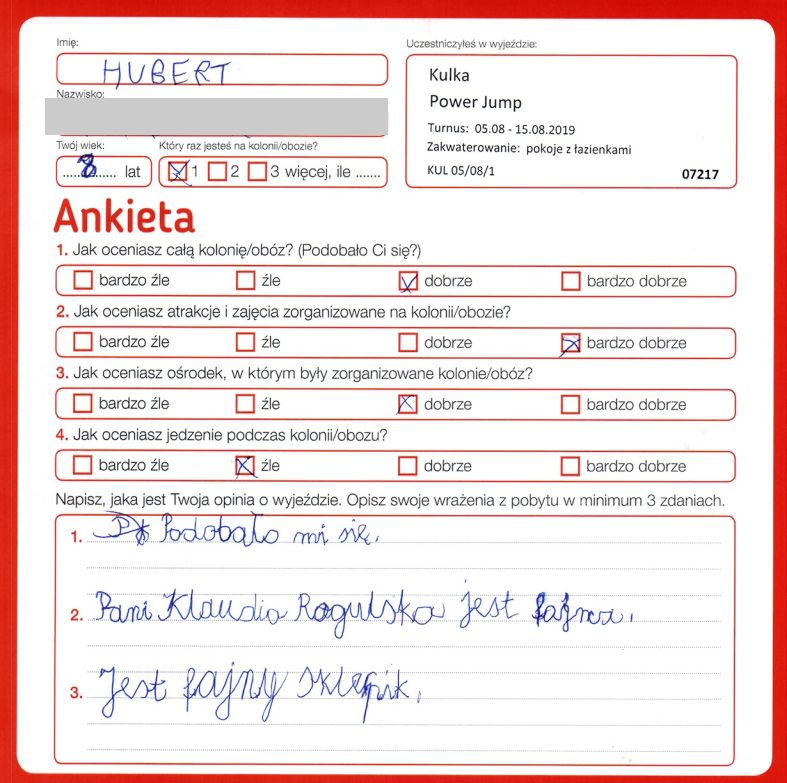 Imię:
HUBERT
Nazwisko:
Twój wiek:
8 lat
Który raz jesteś na kolonii/obozie?
1 2 3 więcej, ile .......
Uczestniczyłeś w wyjeździe:
Kulka
Power Jump
Turnus: 05.08 - 15.08.2019
Zakwaterowanie: pokoje z łazienkami
KUL 05/08/1 07217
Ankieta
1. Jak oceniasz całą kolonię/obóz? (Podobało Ci się?)
bardzo źle źle dobrze bardzo dobrze
2. Jak oceniasz atrakcje i zajęcia zorganizowane na kolonii/obozie?
bardzo źle źle dobrze bardzo dobrze
3. Jak oceniasz ośrodek, w którym były zorganizowane kolonie/obóz?
bardzo źle źle dobrze bardzo dobrze
4. Jak oceniasz jedzenie podczas kolonii/obozu?
bardzo źle źle dobrze bardzo dobrze
Napisz, jaka jest Twoja opinia o wyjeździe. Opisz swoje wrażenia z pobytu w minimum 3 zdaniach.
1. Podobało mi się.
2. Pani Klaudia Rogulska jest fajna.
3. Jest fajny sklepik.